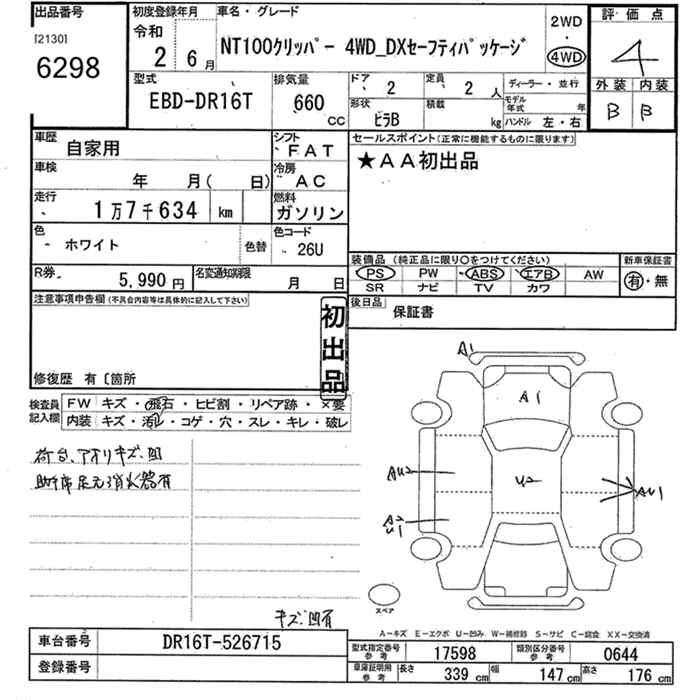 出品番号
[2130]
6298
初度登録年月
令和
2 6月
車名・グレード
NT100クリッパー 4WD_DXセーフティパッケージ
2WD
・
4WD
評価点
4
外装 内装
B B
型式
EBD-DR16T
排気量
660
CC
ドア 2
定員 2 人
形状
ピラB
積載
kg
ディーラー・並行
モデル年式 年
ハンドル 左・右
車歴
自家用
シフト
FAT
セールスポイント(正常に機能するものに限ります)
★AA初出品
車検
年 月( 日)
冷房
AC
走行
1万7千634 km
燃料
ガソリン
色
ホワイト
色替
色コード
26U
装備品(純正品に限り〇をつけてください)
PS PW ABS エアB AW
SR ナビ TV カワ
新車保証書
有・無
R券
5,990円
名変通知期限
月 日
後日品
保証書
注意事項申告欄(不具合内容等は具体的に記入して下さい)
初出品
修復歴 有〔箇所
検査員記入欄
FW キズ・飛石・ヒビ割・リペア跡・×要
内装 キズ・汚レ・コゲ・穴・スレ・キレ・破レ
荷台、アオリキズ、凹
助手席足元消火器有
キズ凹有
A1
A1
AU2
U2
AU1
A2
U1
スペア
A－キズ E－エクボ U－凹み W－補修跡 S－サビ C－腐食 XX－交換済
車台番号
DR16T-526715
登録番号
型式指定番号
参考
17598
類別区分番号
参考
0644
車庫証明用
参考
長さ 339 cm
幅 147 cm
高さ 176 cm